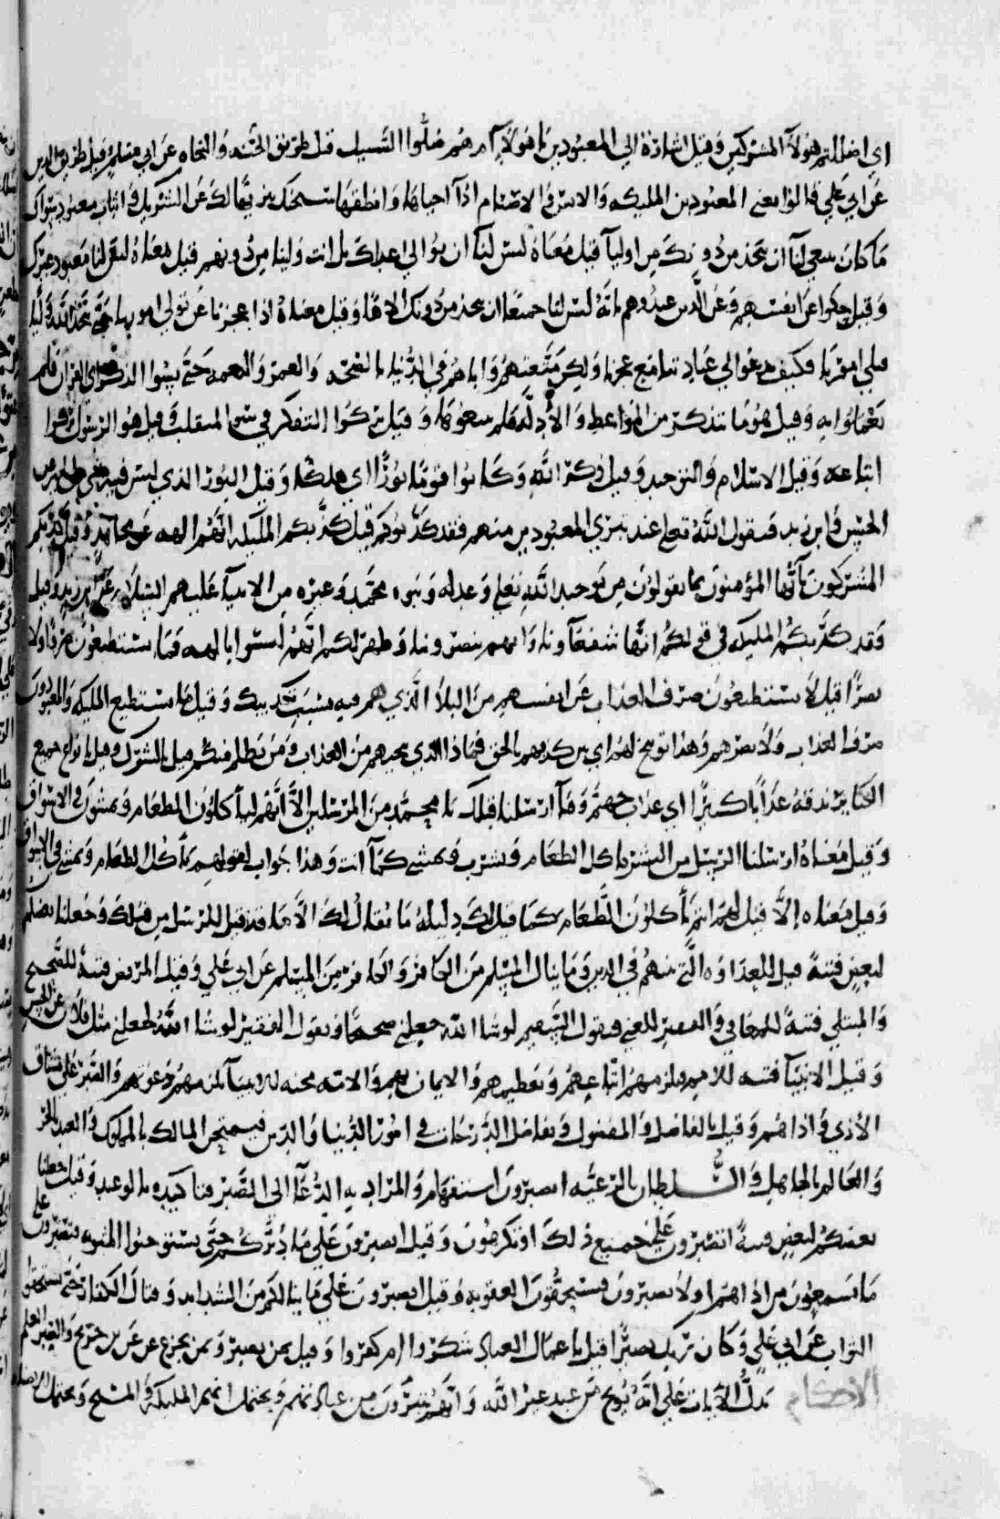 اي اضللتم هؤلاء المشركين وقيل اشارة الى المعبودين يا هؤلاء ام هم ضلوا السبيل قيل طريق الجنة والنجاة عن ابي مسلم وقيل طريق الدين
عن ابي علي قالوا يعني المعبودين الملئكة والانس والاصنام اذا احياها وانطقها سبحنك تنزيها لك عن الشريك
ما كان ينبغي لنا ان نتخذ من دونك من اوليا قيل معناه ليس لنا ان نوالي اعداك بل انت ولينا من دونهم قيل معناه ليس لنا معبود غيرك
وقيل حكوا عن انفسهم وعن الذين عبدوهم بانه ليس لنا جميعا ان نتخذ من دونك الها وقيل معناه اذا عجزنا عن تولي امورنا
فكيف ندعوا الى عبادتنا مع عجزنا ولكن متعتهم واباهم في الدنيا بالصحة والعمر والنعمة حتى نسوا الذكر اي القران فلم
يعملوا به وقيل هو ما تذكر من المواعظ والادلة فلم يتبعوها وقيل تركوا التفكر في المنقلب وقيل هو الرسول تركوا
اتباعه وقيل الاسلام والتوحيد وقيل ذكر الله وكانوا قوما بورا اي هلكا وقيل البور الذي ليس فيه خير عن
الحسن وابن زيد فيقول الله تعلى عند تبري المعبودين منهم فقد كذبوكم قيل كذبكم الملئكة انهم الهة عن مجاهد وقيل كذبكم
المشركون يا ايها المؤمنون بما تقولون من توحيد الله تعلى وعدله ونبوة محمد وغيره من الانبيآ عليهم السلام عن ابن زيد وقيل
وقد كذبكم الملئكة في قولكم انها شفعاونا وانهم ينصرونا وظهر لكم انهم ليسوا بالهة فما يستطيعون صرفا ولا
نصرا قيل لا يستطيعون صرف العذاب عن انفسهم من البلا الذي هم فيه بسبب تكذيبك وقيل ما يستطيع الملئكة والمعبودون
صرف العذاب ولا نصرهم وهذا توبيخ لهم اي من كذبهم بالحق فماذا الذي ينجيهم من العذاب ومن يظلم منكم قيل بالشرك وقيل بانواع جميع
الكبائر نذقه عذابا كبيرا اي عذاب جهنم وما ارسلنا قبلك يا محمد من المرسلين الا انهم لياكلون الطعام ويمشون في الاسواق
وقيل معناه ارسلنا الرسل من البشر ياكل الطعام ويشرب ويمشي كما انت وهذا جواب لقولهم ياكل الطعام ويمشي في الاسواق
وقيل معناه الا قيل لهم انهم ياكلون الطعام كما قيل لك دليله ما يقال لك الا ما قد قيل للرسل من قبلك وجعلنا بعضكم
لبعض فتنة قيل للعداوة التي بينهم في الدين وما ينال المسلم من الكافر والكافر من المسلم عن ابي علي وقيل المريض فتنة للصحيح
والمبتلي فتنة للمعافي والفقير للغني فيقول السقيم لو شا الله جعلني صحيحا ويقول الفقير لو شا الله لجعلني مثل فلان عن الحسن
وقيل الانبيآ فتنة للامم يلزمهم اتباعهم وتعظيمهم والايمان بهم والامة محنة للانبيآ يلزمهم دعوتهم والصبر على مشاق
الاذي واذاهم وقيل بالفاضل والمفضول وتفاضل الدرجات في امور الدنيا والدين فيمتحن المالك بالمملوك والعبد بالحر
والعالم بالجاهل والسلطان بالرعية اتصبرون استفهام والمراد به الدعآ الى الصبر وتاكيده بالوعد وقيل جعلنا
بعضكم لبعض فتنة اتصبرون على جميع ذلك او تكرهون وقيل اتصبرون على ما امرتكم حتى تستوجبوا المثوبة فتصبرون على
ما تسمعون من اذاهم او لا تصبرون فتستحقون العقوبة وقيل اتصبرون على ما ينالكم من الشدائد وقتال الكفار حتى تستحقوا
الثواب عن ابي علي وكان ربك بصيرا قيل باعمال العباد شكروا ام كفروا وقيل بمن يصبر ومن يجزع عن ابن جريج
الاحكام تدل الايات على انه يوبخ من عبد غير الله وانهم يتبرون من عبادتهم ويحتمل انهم الملئكة والمسيح ويحتمل الاصنام